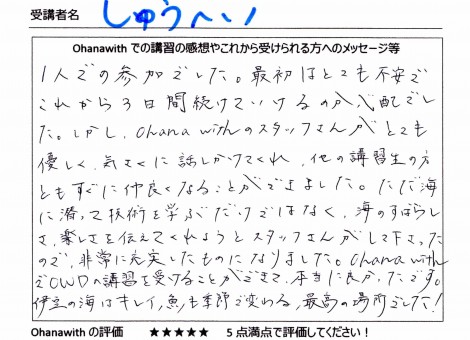 受講者名 しゅうへい
Ohanawith での講習の感想やこれから受けられる方へのメッセージ等
1人での参加でした。最初はとても不安で
これから3日間続けていけるのか心配でし
た。しかし、Ohana withのスタッフさんがとても
優しく、気さくに話しかけてくれ、他の講習生の方
ともすぐに仲良くなることができました。ただ海
に潜って技術を学ぶだけではなく、海のすばらし
さ、楽しさを伝えてくれようとスタッフさんがして下さった
ので、非常に充実したものになりました。Ohana with
でOWDの講習を受けることができて、本当に良かったです。
伊豆の海はキレイ、魚も季節で変わる、最高の場所でした!
Ohanawith の評価 ★★★★★ 5点満点で評価してください!